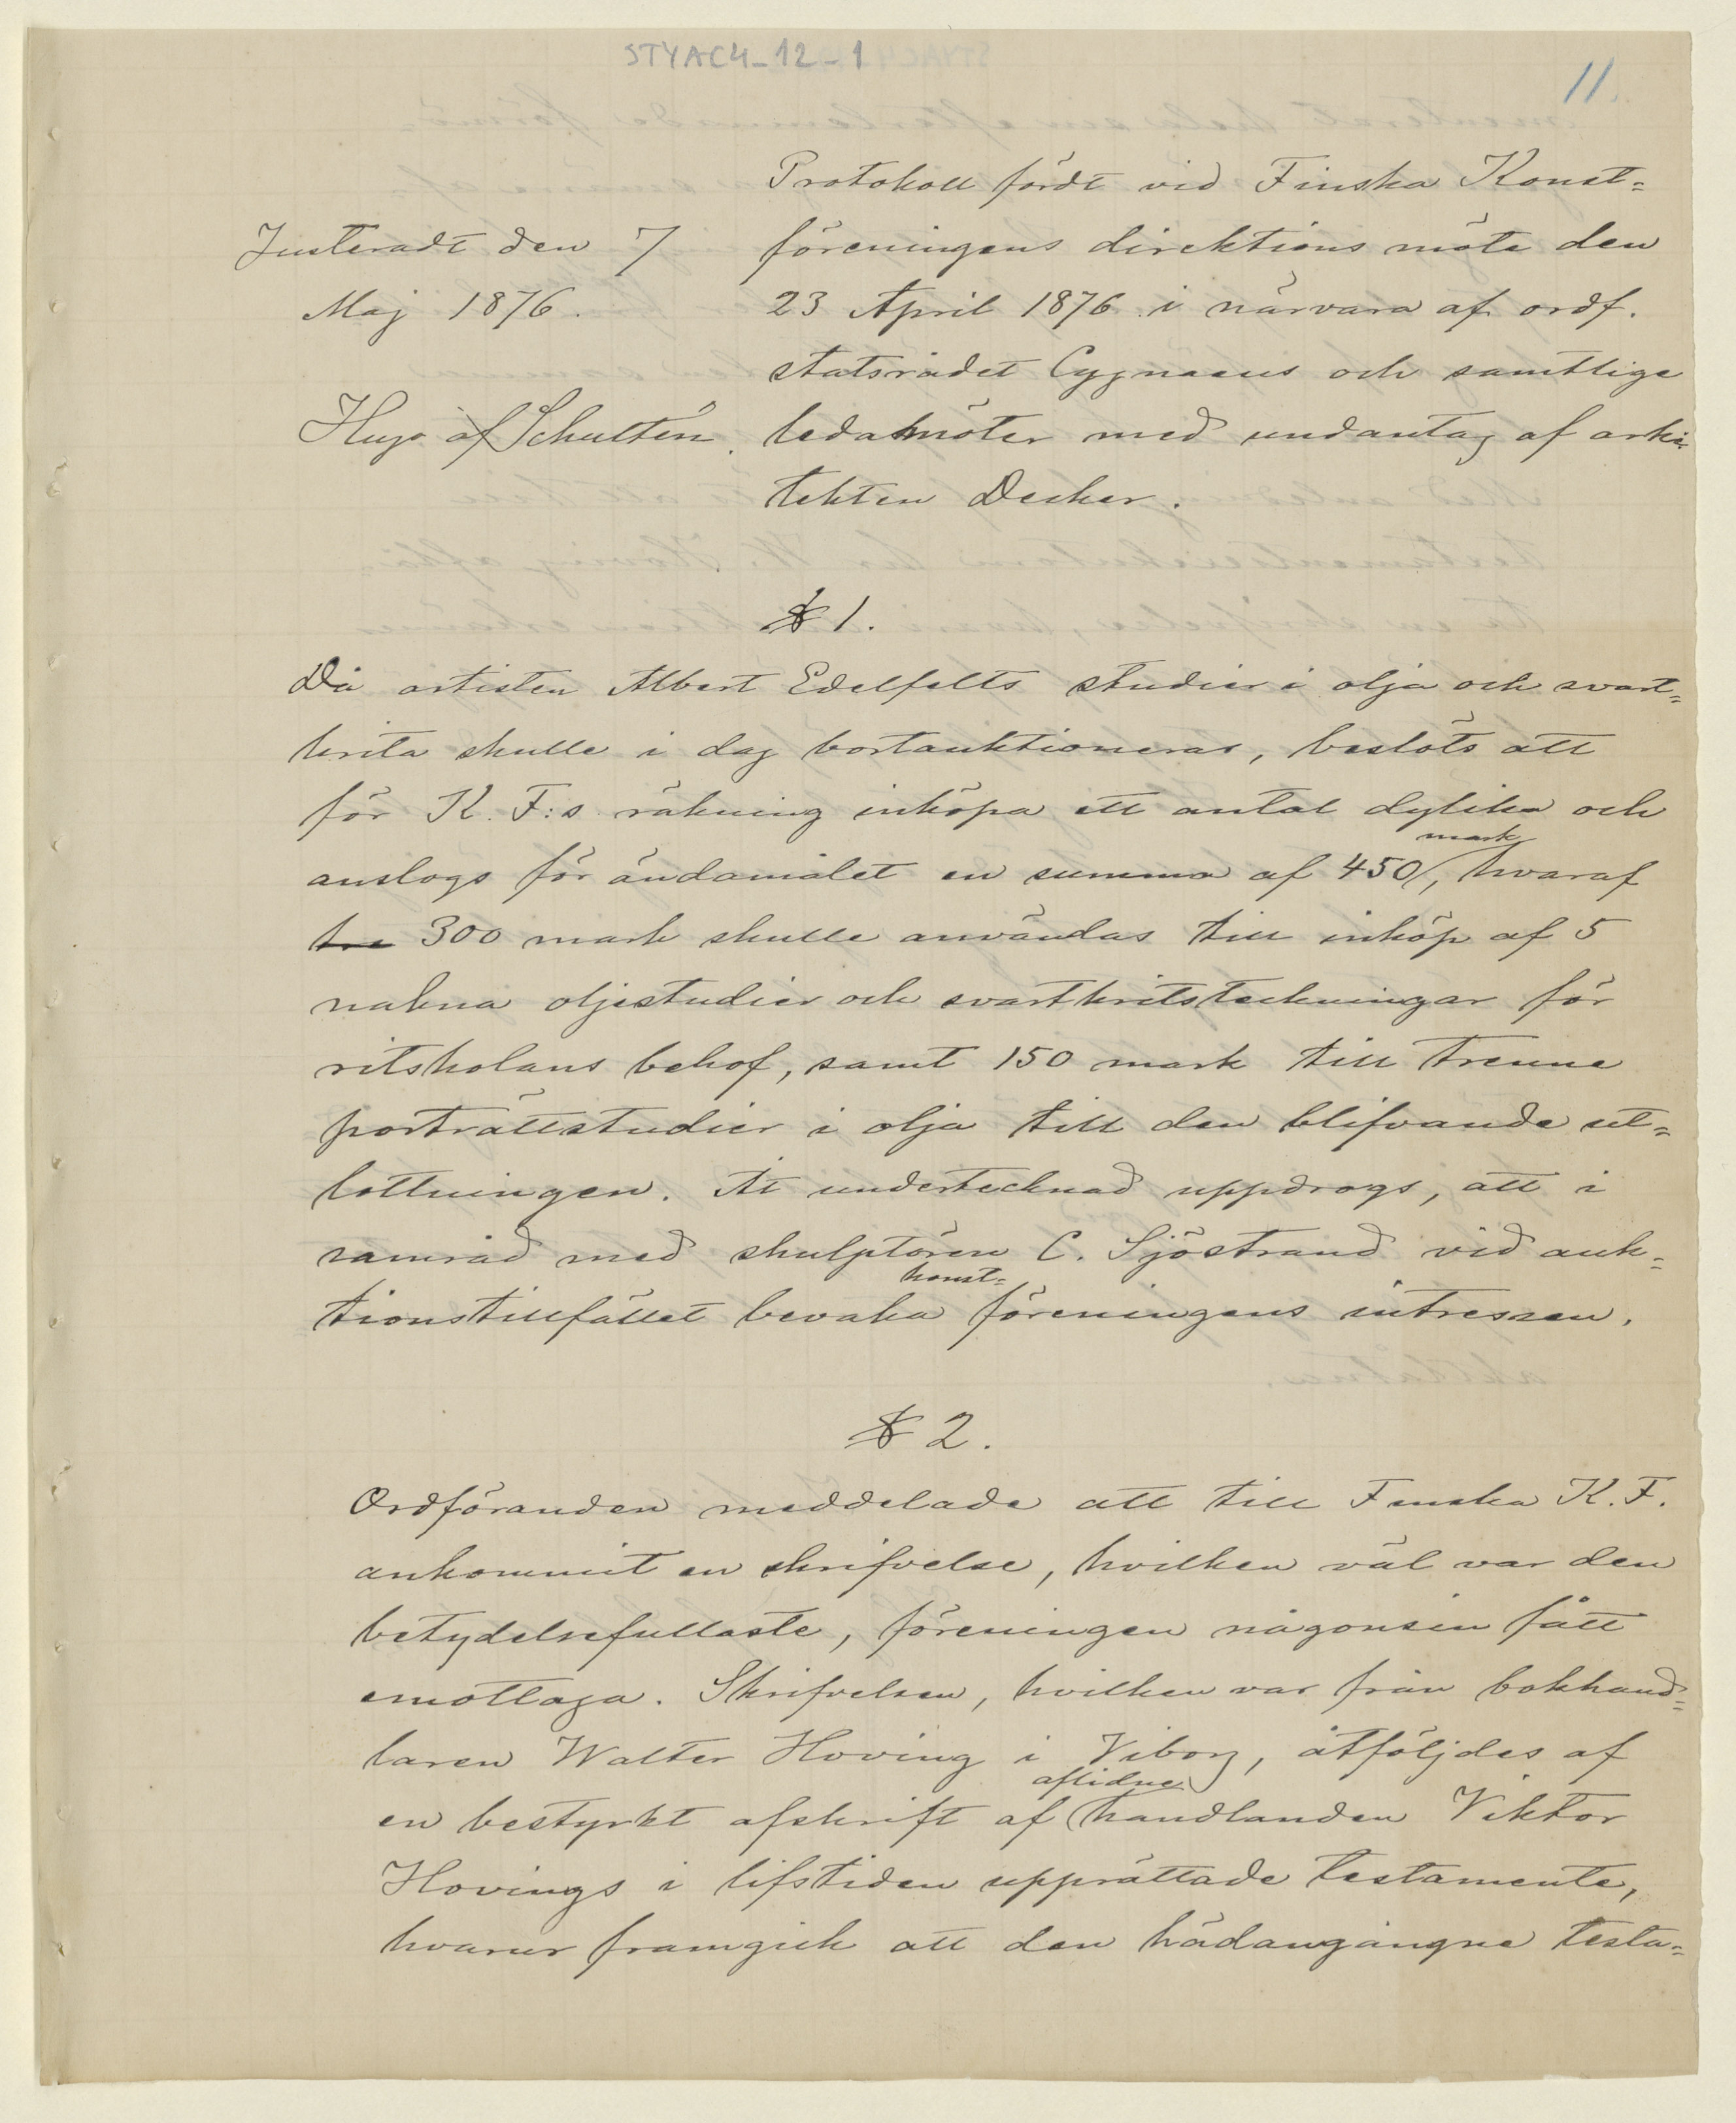 STYAC4_12_1
11.
Protokoll fördt vid Finska Konst=
föreningens direktions möte den
23 April 1876 i närvara af ordf.
statsrådet Cygnaeus och samtlige
ledamöter med undantag af arki=
tekten Decker.
Justeradt den 7
Maj 1876.
Hugo af Schultén.
§ 1.
Då artisten Albert Edelfelts studier i olja och svart=
krita skulle i dag bortauktioneras, beslöts att
för K. F:s räkning inköpa ett antal dylika och
mark
anslogs för ändamålet en summa af 450, hvaraf
300 mark skulle användas till inköp af 5
nakna oljestudier och svartkritsteckningar för
ritskolans behof, samt 150 mark till trenne
porträttstudier i olja till den blifvande ut=
lottningen. Åt undertecknad uppdrogs, att i
samråd med skulptören C. Sjöstrand vid auk=
konst=
tionstillfället bevaka föreningens intressen.
§ 2.
Ordföranden meddelade att till Finska K. F.
ankommit en skrifvelse, hvilken väl var den
betydelsefullaste, föreningen någonsin fått
emottaga. Skrifvelsen, hvilken var från bokhand=
laren Walter Hoving i Viborg, åtföljdes af
aflidne
en bestyrkt afskrift af handlanden Viktor
Hovings i lifstiden upprättade testamente,
hvarur framgick att den hädangångne testa=